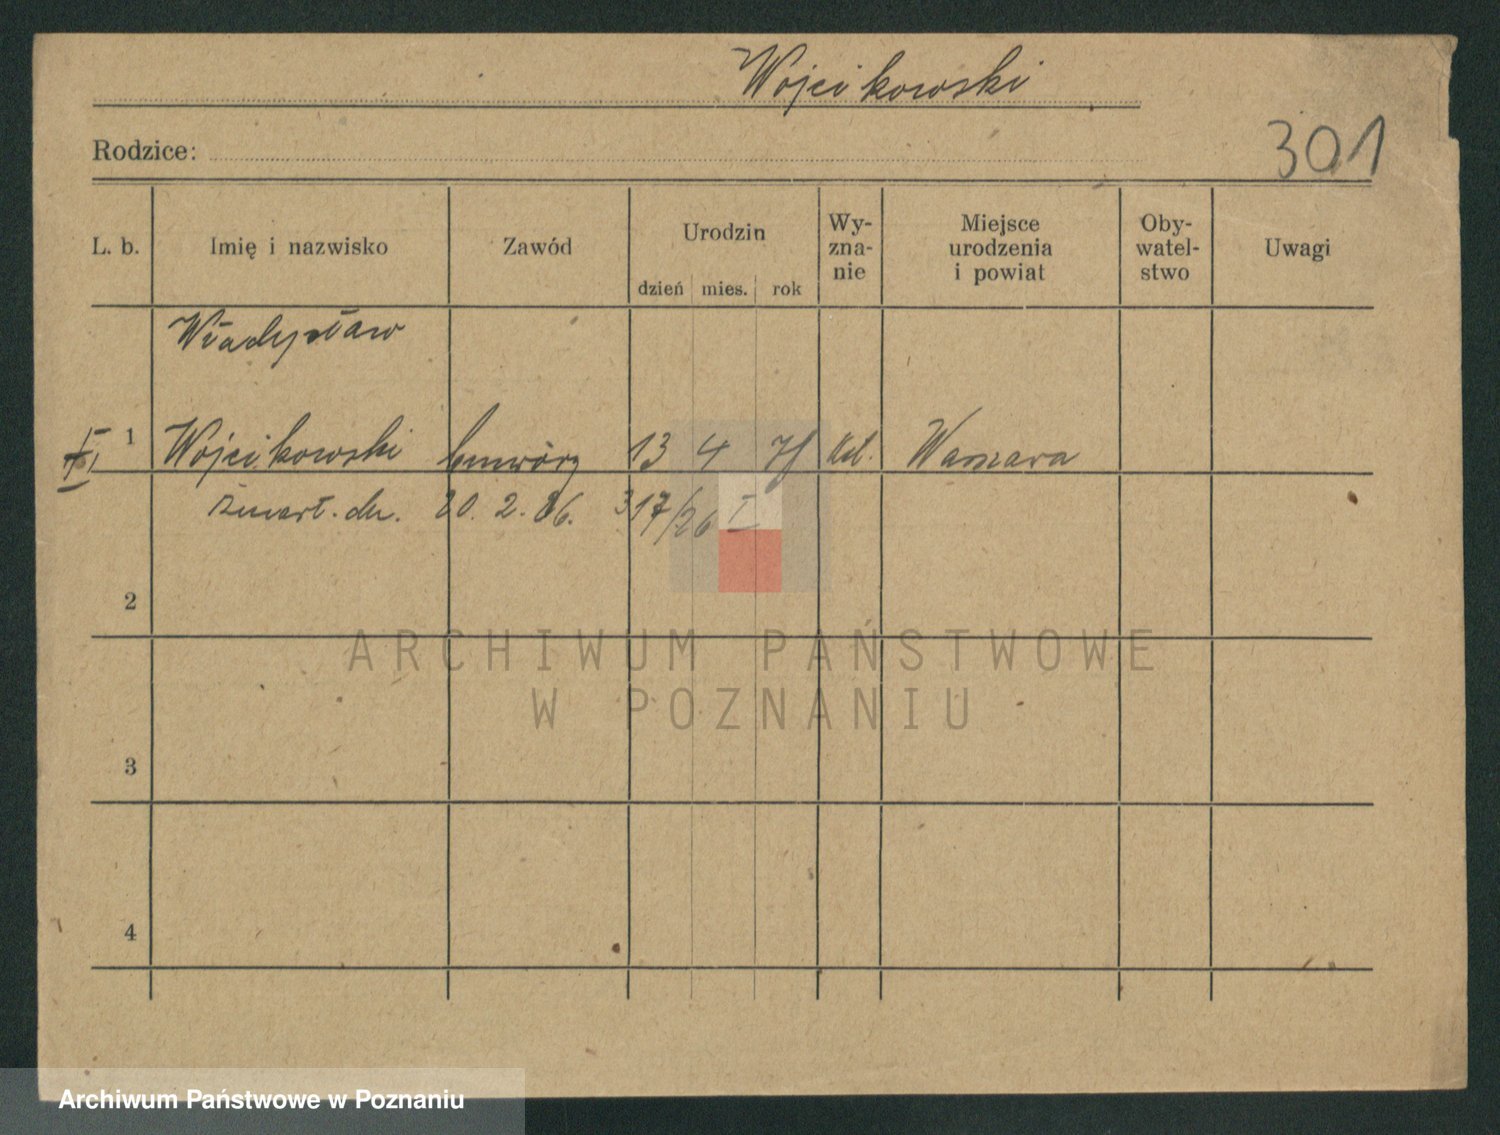 Wojcikowski
Rodzice:
301
L. b. Imię i nazwisko Zawód Urodzin dzień mies. rok Wy-zna-nie Miejsce urodzenia i powiat Oby-watel-stwo Uwagi
Władysław
1 Wojcikowski 13 4 Warszawa
zmarł. dn. 20. 2. 26. 317/26 I
2
ARCHIWUM PAŃSTWOWE
W POZNANIU
3
4
Archiwum Państwowe w Poznaniu